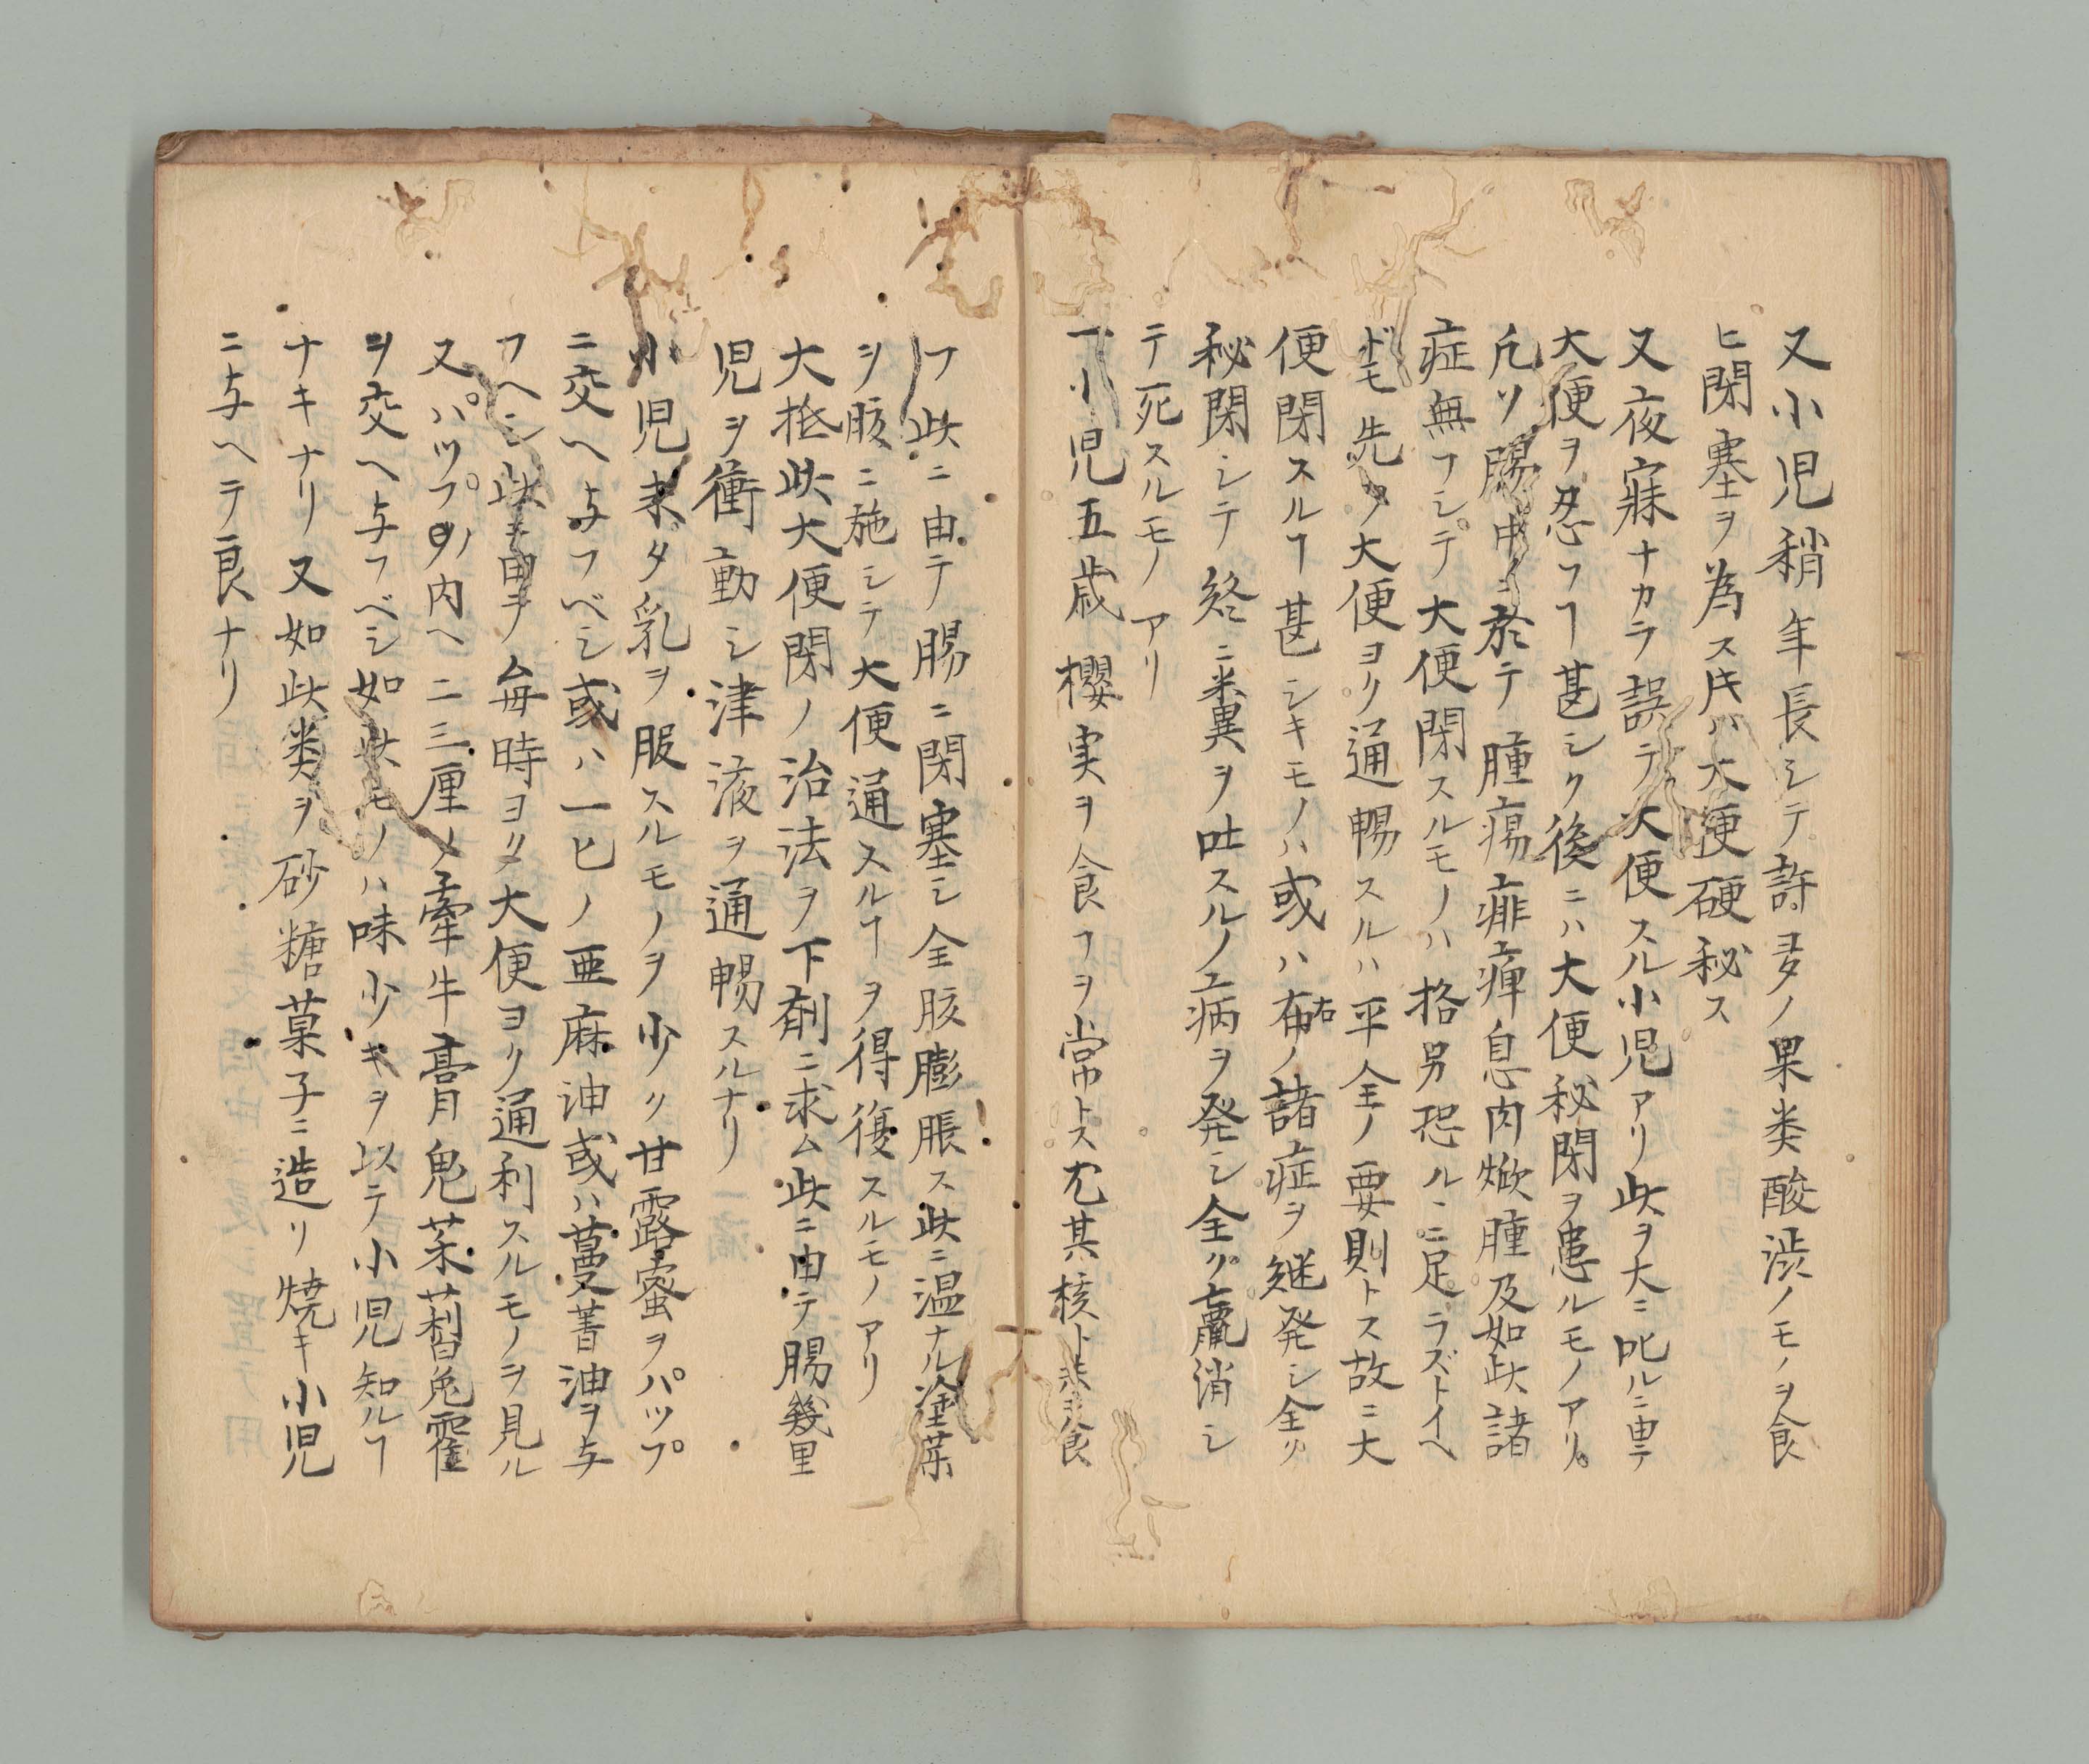 又小児稍年長シテ許多ノ果类酸渋ノモノヲ食
ヒ閉塞ヲ為ス𪜈ハ大便硬秘ス
又夜寐ナカラ誤テ大便スル小児アリ此ヲ大ニ叱ルニ由テ
大便ヲ忍フヿ甚シク後ニハ大便秘閉ヲ患ルモノアリ
凡ソ腸中ニ於テ腫瘍痱痺息肉焮腫及如此諸
症無フシテ大便閉スルモノハ格另恐ルヽニ足ラズトイヘ
𪜈先ツ大便ヨリ通暢スルハ平全ノ要則トス故ニ大
便閉スルヿ甚シキモノハ或ハ右ノ諸症ヲ継発シ全ク
秘閉シテ終ニ糞ヲ吐スルノ病ヲ発シ全ク羸消シ
テ死スルモノアリ
一小児五歳櫻実ヲ食フヲ常トス尤其核ト共ニ食
フ此ニ由テ腸ニ閉塞シ全腹膨脹ス此ニ温ナル塗薬
ヲ腹ニ施シテ大便通スルヿヲ得復スルモノアリ
大抵此大便閉ノ治法ヲ下剤ニ求ム此ニ由テ腸幾里
児ヲ衝動シ津液ヲ通暢スルナリ
小児未タ乳ヲ服スルモノヲ少シク甘露蜜ヲパツプ
ニ交ヘ与フベシ或ハ一匕ノ亜麻油或ハ蔓菁油ヲ与
フヘシ此ニ由テ毎時ヨク大便ヨリ通利スルモノヲ見ル
又パツプノ内ヘ二三厘ノ牽牛膏鬼莱菔菟雚
ヲ交ヘ与フベシ如此モノハ味少キヲ以テ小児知ルヿ
ナキナリ又如此类ヲ砂糖菓子ニ造リ焼キ小児
ニ与ヘテ良ナリ